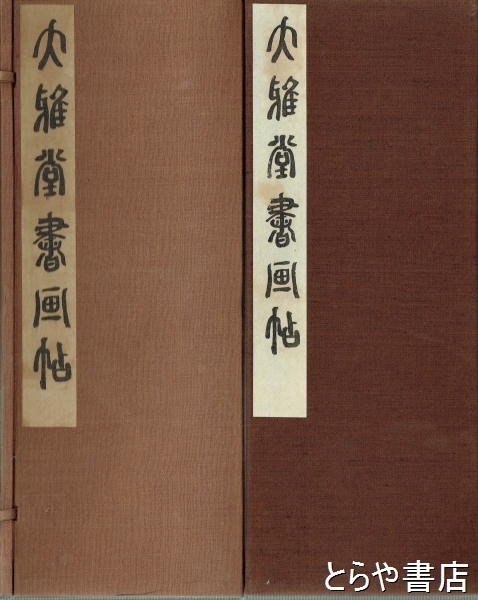 大雅堂書画帖
大雅堂書画帖
とらや書店